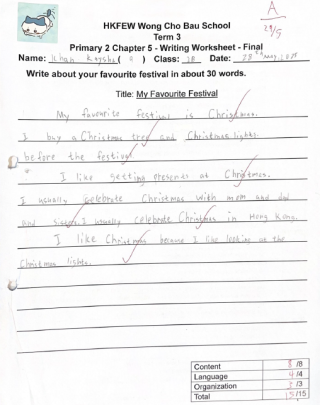 A
28/5
HKFEW Wong Cho Bau School
Term 3
Primary 2 Chapter 5 - Writing Worksheet - Final
Name: Khan ( 9 ) Class: 2B Date: 28th May,
Write about your favourite festival in about 30 words.
Title: My Favourite Festival
My favourite festival is Christmas.
I buy a Christmas tree and Christmas lights
before the festival.
I like getting presents at Christmas.
I usually celebrate Christmas with mom and dad
and I usually celebrate Christmas in Hong Kong.
I like Christmas because I like looking at the
Christmas lights.
Content 8 /8
Language 4 /4
Organization 3 /3
Total 15 /15